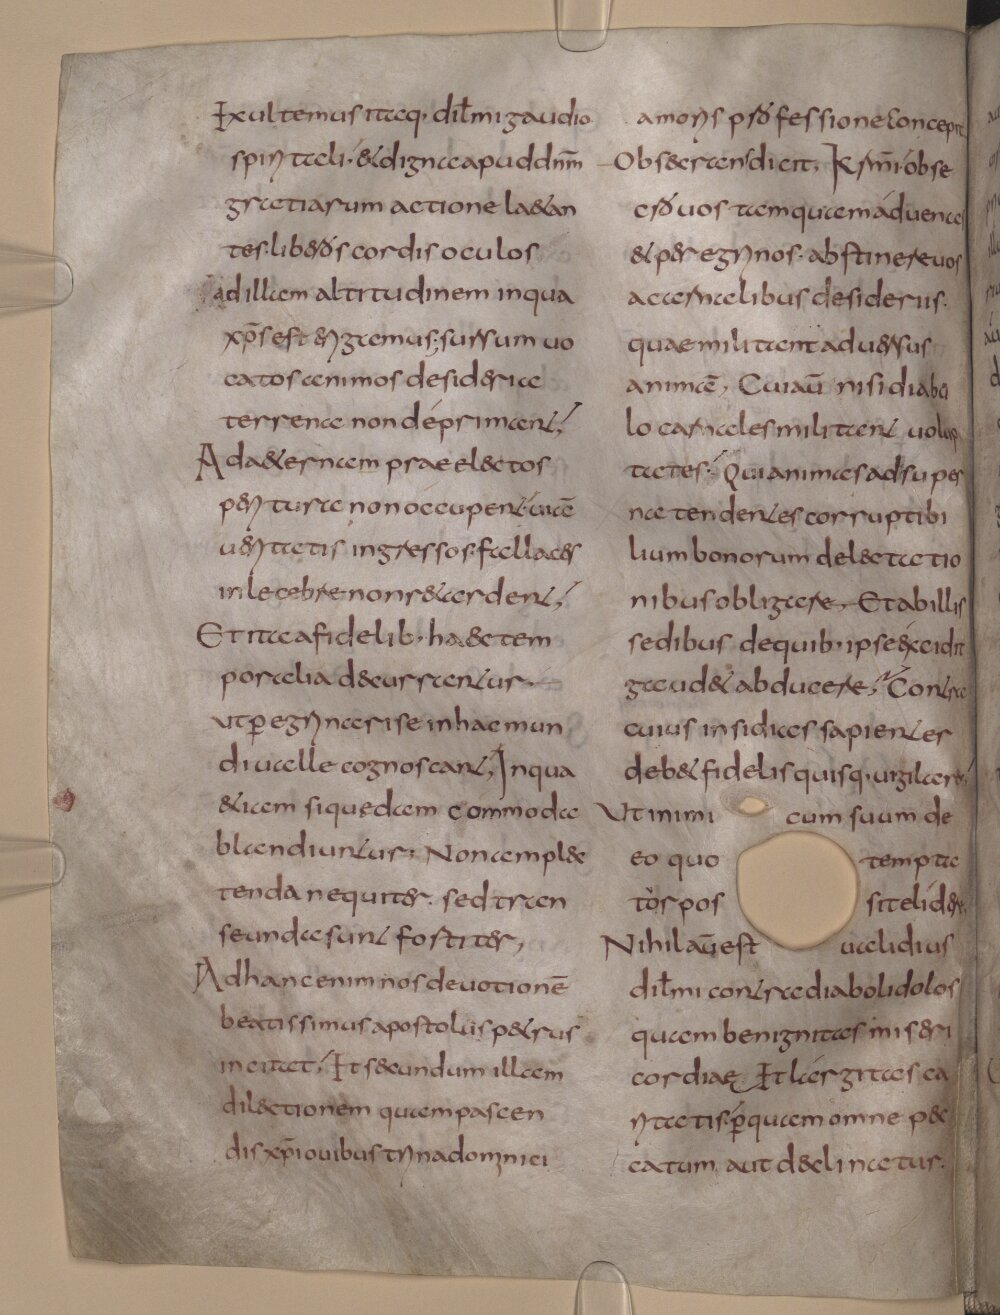 Exultemus itaq· dil̄mi gaudio
spiritali· & digna apud dnm̄
gratiarum actione laetan
tes· liberos cordis oculos
ad illam altitudinem in qua
xp̄s est erigamus; sursum uo
catos animos desideria
terrena non déprimant;
Ad aeternam praeelectos
peritura non occupent; uiā
ueritatis ingressos· fallaces
inlecebre non retardent;
Et ita a fidelib· haec tem
poralia decurrantur.
ut p̱egrinari se in hac mun
di ualle cognoscant; In qua
etiam si quedam commoda
blandiuntur; Non amplec
tenda nequiter· sed tran
seunda sunt fortiter;
Ad hanc enim nos deuotionē
beatissimus apostolus petrus
incitat; Et secundum illam
dilectionem quam pascen
dis xp̄i ouibus trina domnici
amoris professione concepit
Obsecrans dicit; Kr̄mi obse
cro uos tamquam aduenas
& peregrinos· abstinere uos
a carnalibus desideriis·
quae militant aduersus
animā; Cui aū nisi diabo
lo carnales militant uolup
tates; Qui animas ad super
na tendentes corruptibi
lium bonorum delectatio
nibus obligare; Et ab illis
sedibus de quib· ipse excidit
gaudet abducere; Contra
cuius insidias sapienter
debet fidelis quisq· uigilare;
Ut inimicum suum de
eo quo temptat
tòr possit elidere
Nihil aū est ualidius
dil̄mi contra diaboli dolos
quam benignitas miseri
cordiae Et largitas ca
ritatis; p̱ quam omne pec
catum aut declinatur·